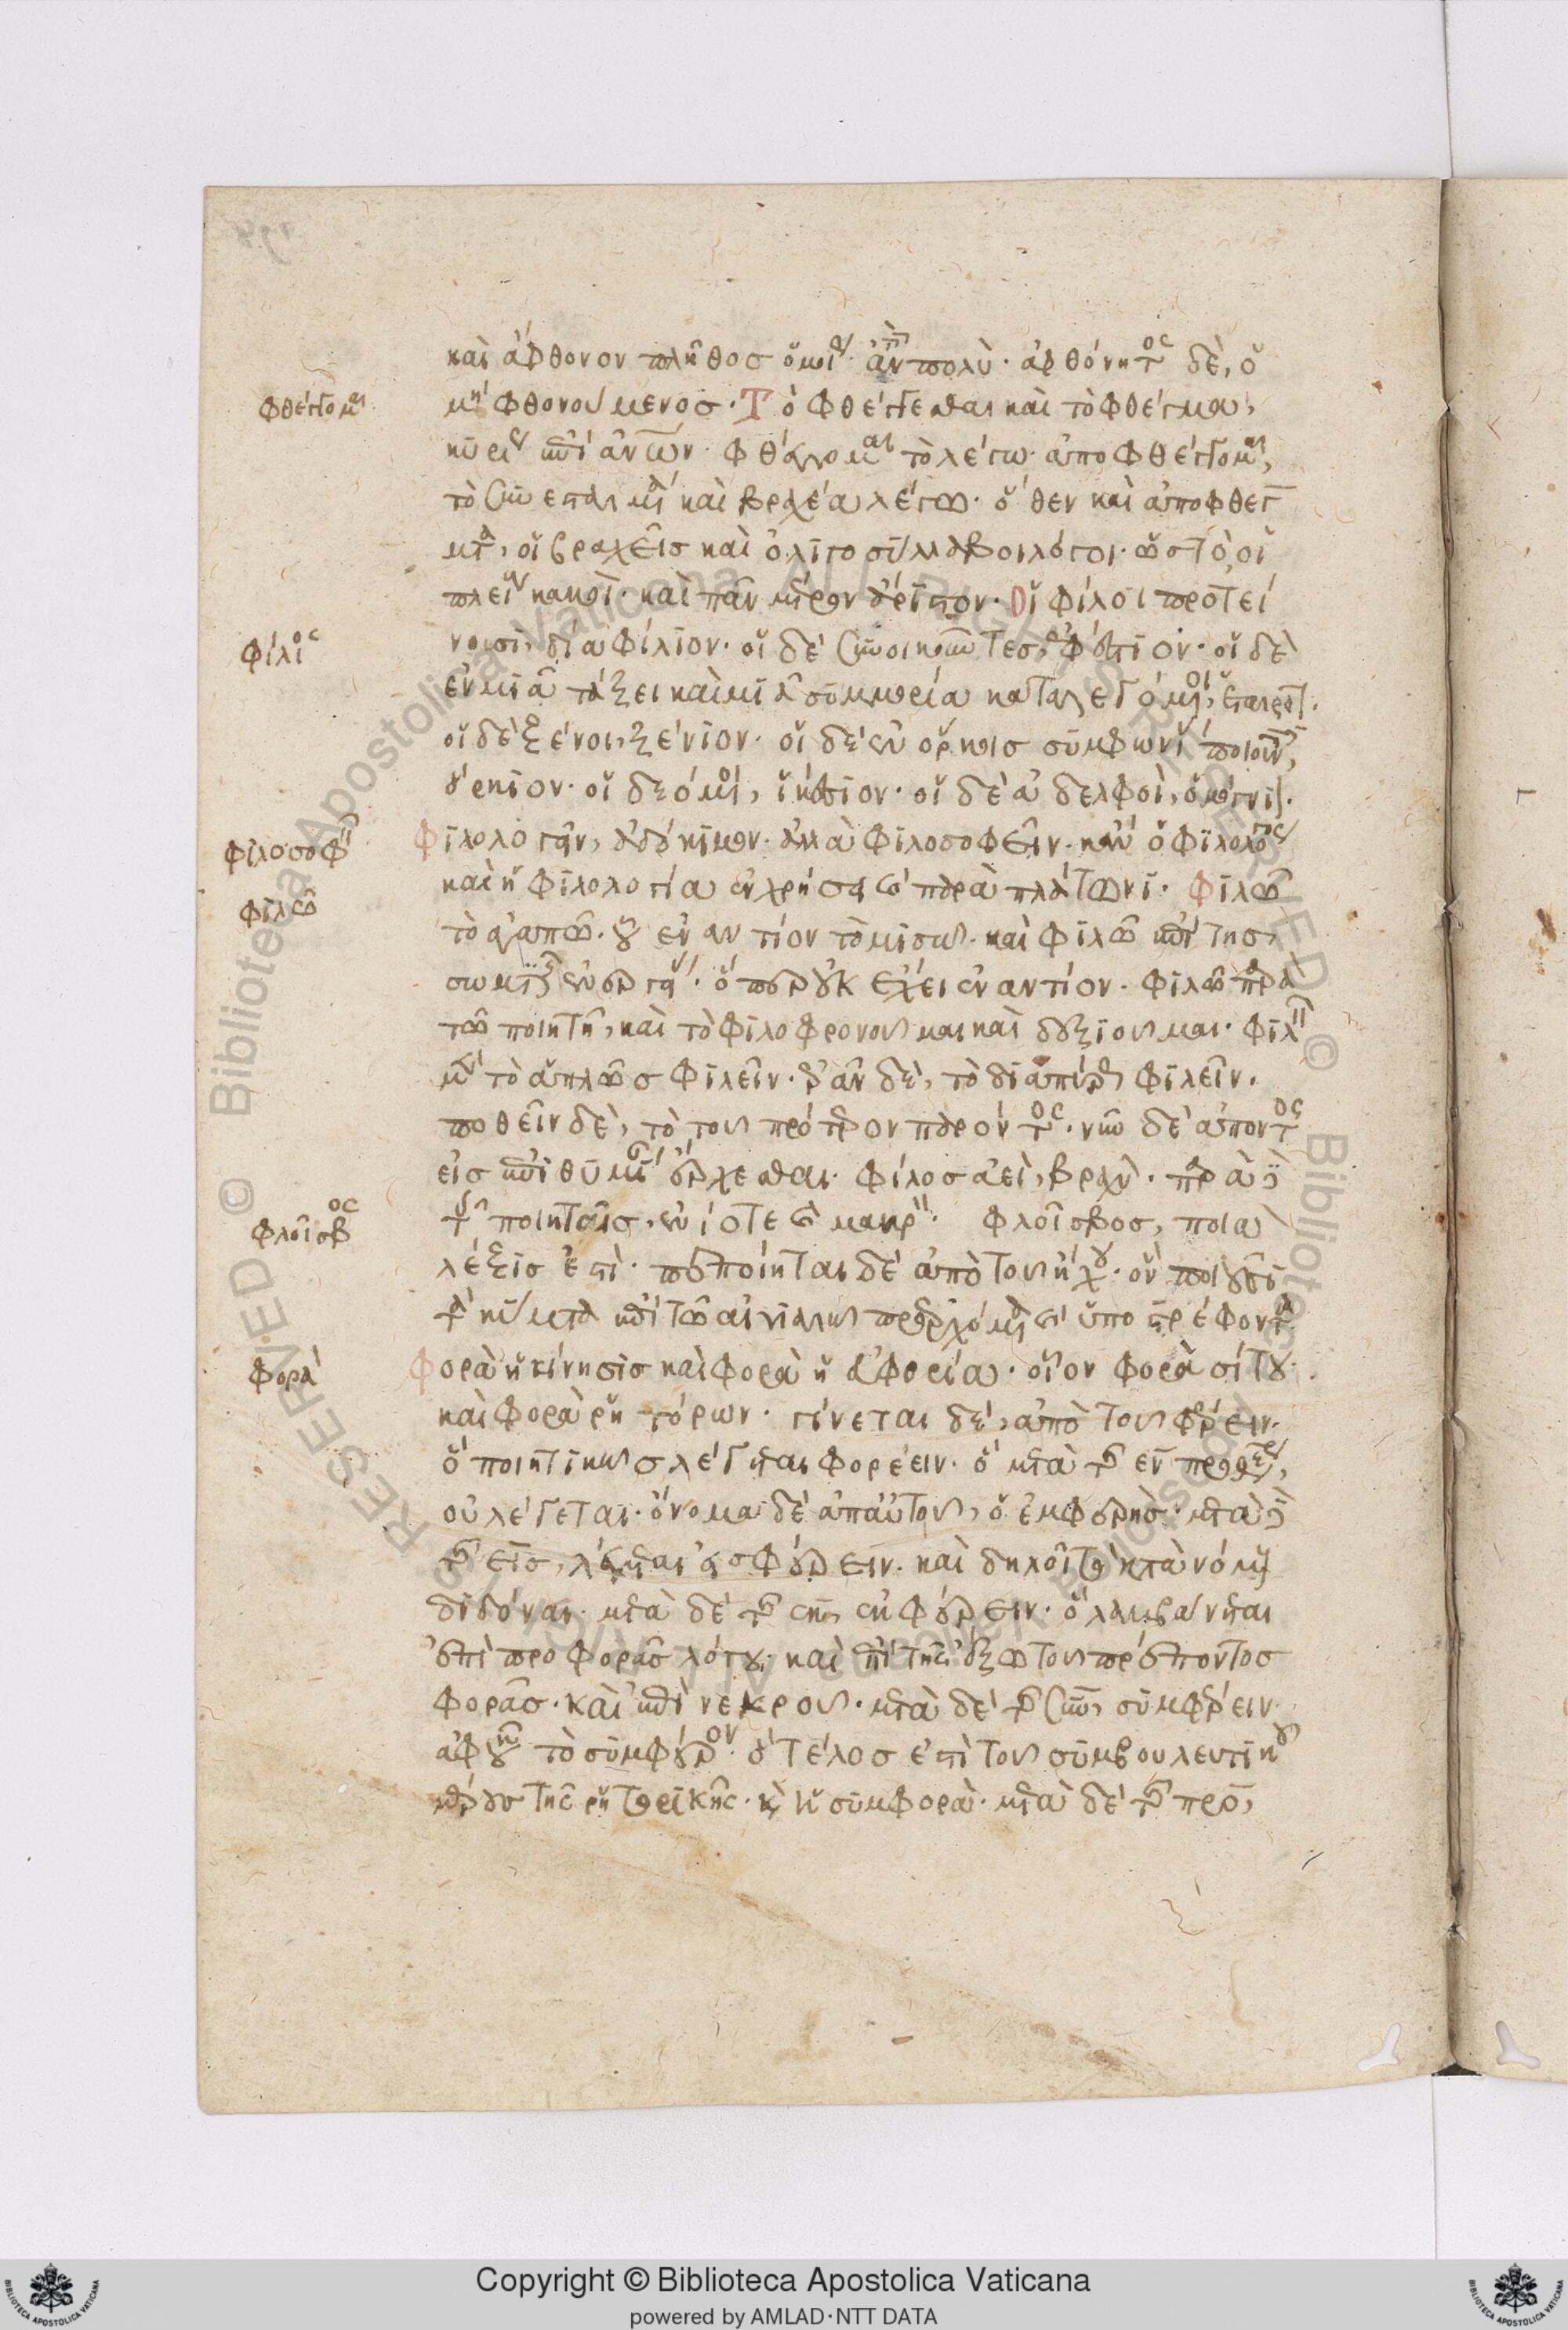 καὶ ἄφθονον πλῆθος ὁμοίως ἀντὶ πολύ· ἀφθόνητος δὲ, ὁ
φθέγγομαι
μὴ φθονούμενος· Τὸ φθέγγεσθαι καὶ τὸ φθέγμα,
κυρίως ἐπὶ ἀνθρώπων· φθέγγομαι τὸ λέγω· ἀποφθέγγομαι,
τὸ συνεσταλμένα καὶ βραχέα λέγω· ὅθεν καὶ ἀποφθέγ
ματα, οἱ βραχεῖς καὶ ὀλιγοσύλλαβοι λόγοι· ὥσπερ τὸ, οἱ
πλείους κακοί· καὶ πᾶν μέτρον ἄριστον· Οἱ φίλοι προτεί
φίλιος
νουσι, δία φίλιον· οἱ δὲ συνοικοῦντες, ἐφέστιον· οἱ δὲ
ἐν μιᾷ τάξει καὶ μιᾷ συμμορία καταλεγόμενοι, ἑταιρεῖον·
οἱ δὲ ξένοι, ξένιον· οἱ δὲ ἐν ὅρκοις σύμφωνα ποιοῦντες,
ὅρκιον· οἱ δεόμενοι, ἱκέσιον· οἱ δὲ ἀδελφοὶ, ὁμόγνιον·
φιλοσοφεῖν
Φιλολογεῖν, ἀδόκιμον· ἀλλὰ φιλοσοφεῖν· κἂν ὁ φιλόλογος
καὶ ἡ φιλολογία ἐν χρήσει ἐστὶ παρὰ πλάτωνι· Φιλῶ
φιλῶ
τὸ ἀγαπῶ· οὗ ἐναντίον τὸ μισῶ· καὶ φιλῶ ἐπὶ τῆς
σωματικῆς ἐνεργείας· ὅπερ οὐκ ἔχει ἐναντίον· φιλῶ παρὰ
τῶ ποιητῆ, καὶ τὸ φιλοφρονοῦμαι καὶ δεξιοῦμαι· φιλεῖν
μὲν τὸ ἁπλῶς φιλεῖν· ἐρᾶν δὲ, τὸ διαπύρως φιλεῖν·
ποθεῖν δὲ, τὸ τοῦ πρότερον παρόντος· νῦν δὲ ἀπόντος
εἰς ἐπιθυμίαν ἔρχεσθαι· φίλος ἀεὶ, βραχύ· παρὰ δὲ
φλοῖσβος
τοῖς ποιηταῖς, ἐνίοτε καὶ μακρόν· φλοῖσβος, ποιὰ
λέξις ἐστὶ· πεποίηται δὲ ἀπὸ τοῦ ἤχου· ὃν ποιοῦσι
τὰ κύματα ἐπὶ τῶ αἰγιαλῶ προερχόμενα καὶ ὑποστρέφοντα
φορὰ
Φορὰ ἡ κίνησις καὶ φορὰ ἡ εὐφορία· οἷον φορὰ σίτου·
καὶ φορὰ ῥητόρων· γίνεται δὲ, ἀπὸ τοῦ φέρειν·
ὃ ποιητικῶς λέγεται φορέειν· ὃ μετὰ τῆς ἐν προθέσεως,
οὐ λέγεται· ὄνομα δὲ ἀπ' αὐτοῦ, ὁ ἐμφερής· μετὰ δὲ
τῆς εἰς, λέγεται εἰσφέρειν· καὶ δηλοῖ τὸ κατὰ νόμον
διδόναι· μετὰ δὲ τῆς ἐκ, ἐκφέρειν· ὃ λαμβάνεται
ἐπὶ προφορᾶς λόγου· καὶ ἐπὶ τῆς ἔξω τοῦ πρέποντος
φορᾶς· καὶ ἐπὶ νεκροῦ· μετὰ δὲ τῆς σὺν, συμφέρειν·
ἀφ' οὗ τὸ συμφέρον· ὃ τέλος ἐστὶ τοῦ συμβουλευτικοῦ
μέρους τῆς ῥητορικῆς· καὶ ἡ συμφορά· μετὰ δὲ τῆς πρὸ,
Copyright © Biblioteca Apostolica Vaticana
powered by AMLAD·NTT DATA